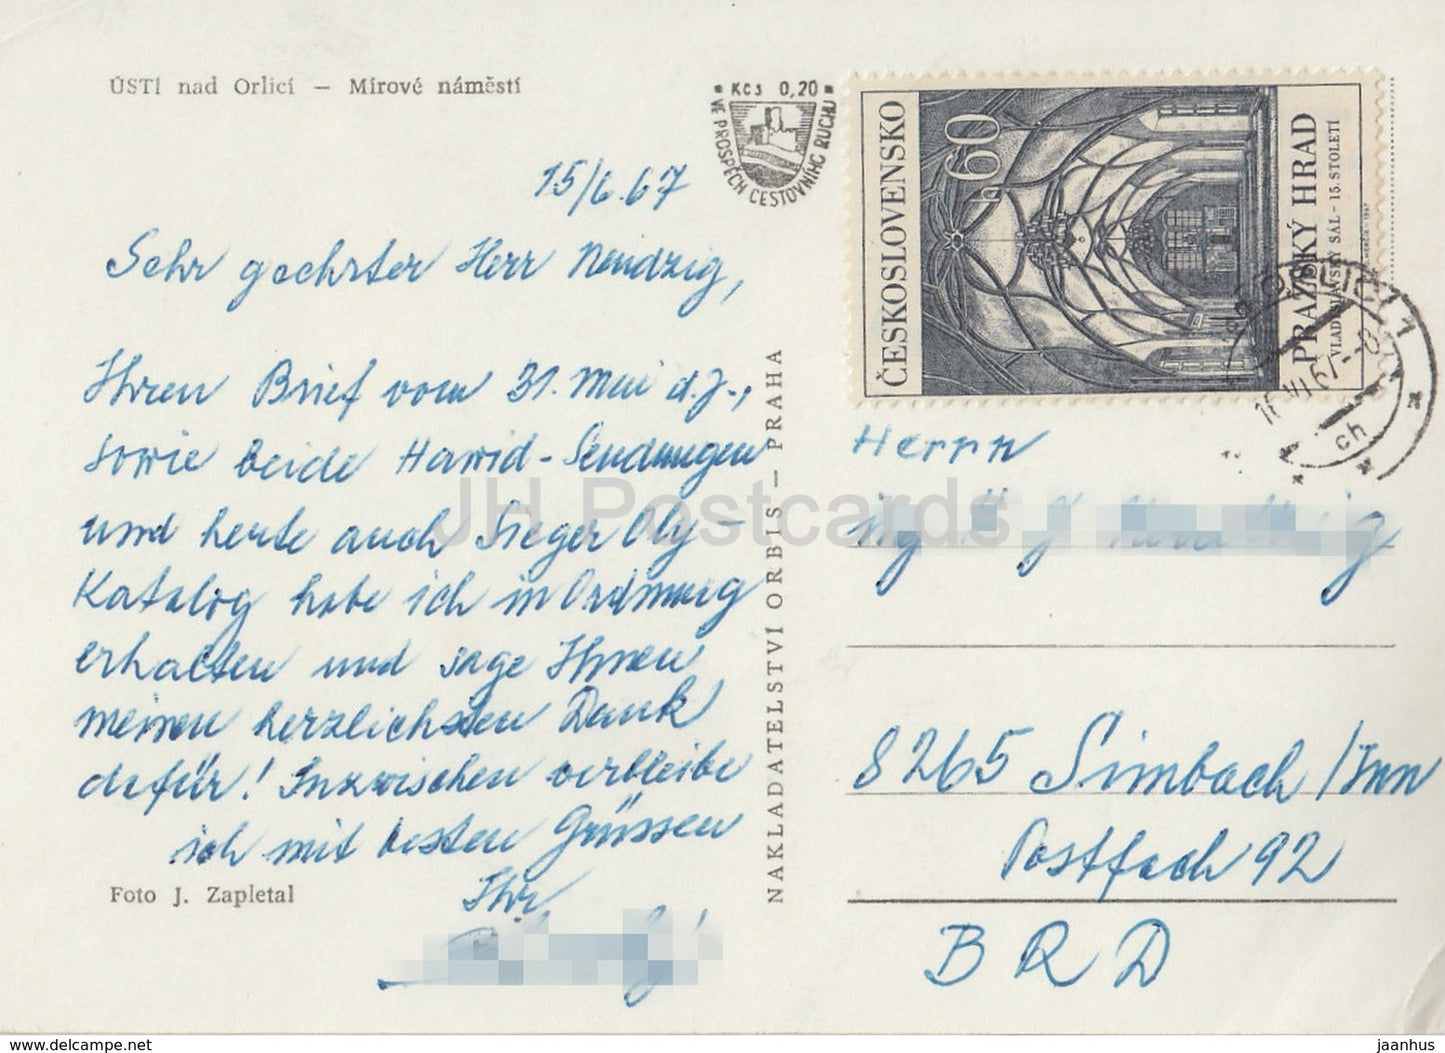 ÚSTÍ nad Orlicí — Mírové náměstí
Kčs 0,20
VE PROSPĚCH CESTOVNÍHO RUCHU
15/6.67
Sehr geehrter Herr Neudzig,
Ihren Brief vom 31. Mai d.J.,
sowie beide Hawid-Sendungen
und heute auch Sieger Oly-
Katalog habe ich in Ordnung
erhalten und sage Ihnen
meinen herzlichsten Dank
dafür! Inzwischen verbleibe
ich mit besten Grüssen
Ihr
Foto J. Zapletal
NAKLADATELSTVÍ ORBIS — PRAHA
ČESKOSLOVENSKO
60 h
PRAŽSKÝ HRAD
VLADISLAVSKÝ SÁL - 15. STOLETÍ
ORLICÍ 1
ch
Herrn
8265 Simbach/Inn
Postfach 92
BRD
JH Postcards
www.delcampe.net
jaanhus